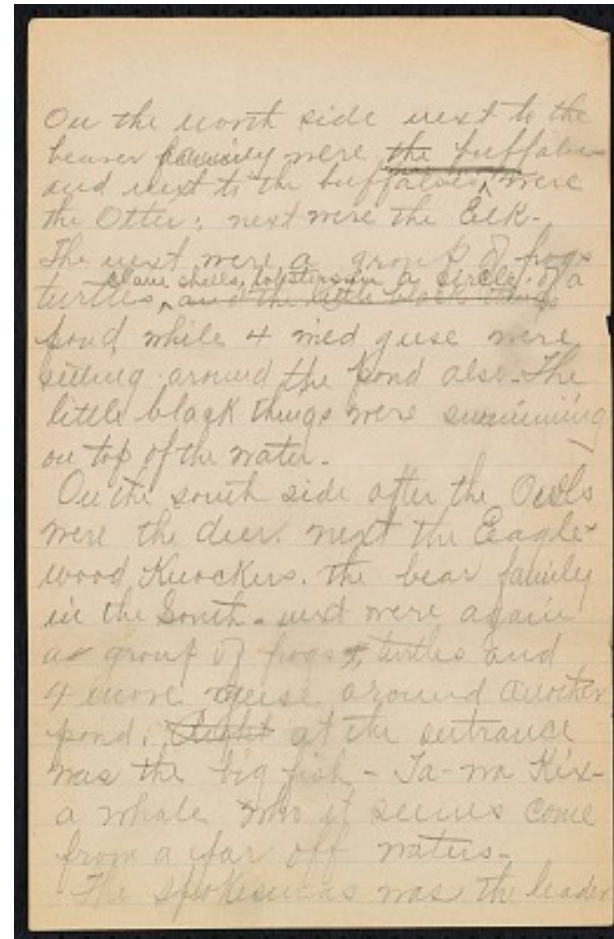 On the north side next to the
beaver family were the buffaloe
and next to the buffaloes, were
the Otter; next were the Elk-
The next were a group of frogs
clam shells, lobsters in a circle of a
turtles, and the little black things
pond while 4 med geese were
sitting around the pond also. The
little black things were swimming
on top of the water.
On the south side after the Owls
were the deer. next the Eagle-
wood Knockers. the bear family
in the South - next were again
a group of frogs & turtles and
4 more geese around another
pond. Right at the entrance
was the big fish - Ta-wa Kix-
a whale who it seems come
from a far off waters-
The spokesman was the leader